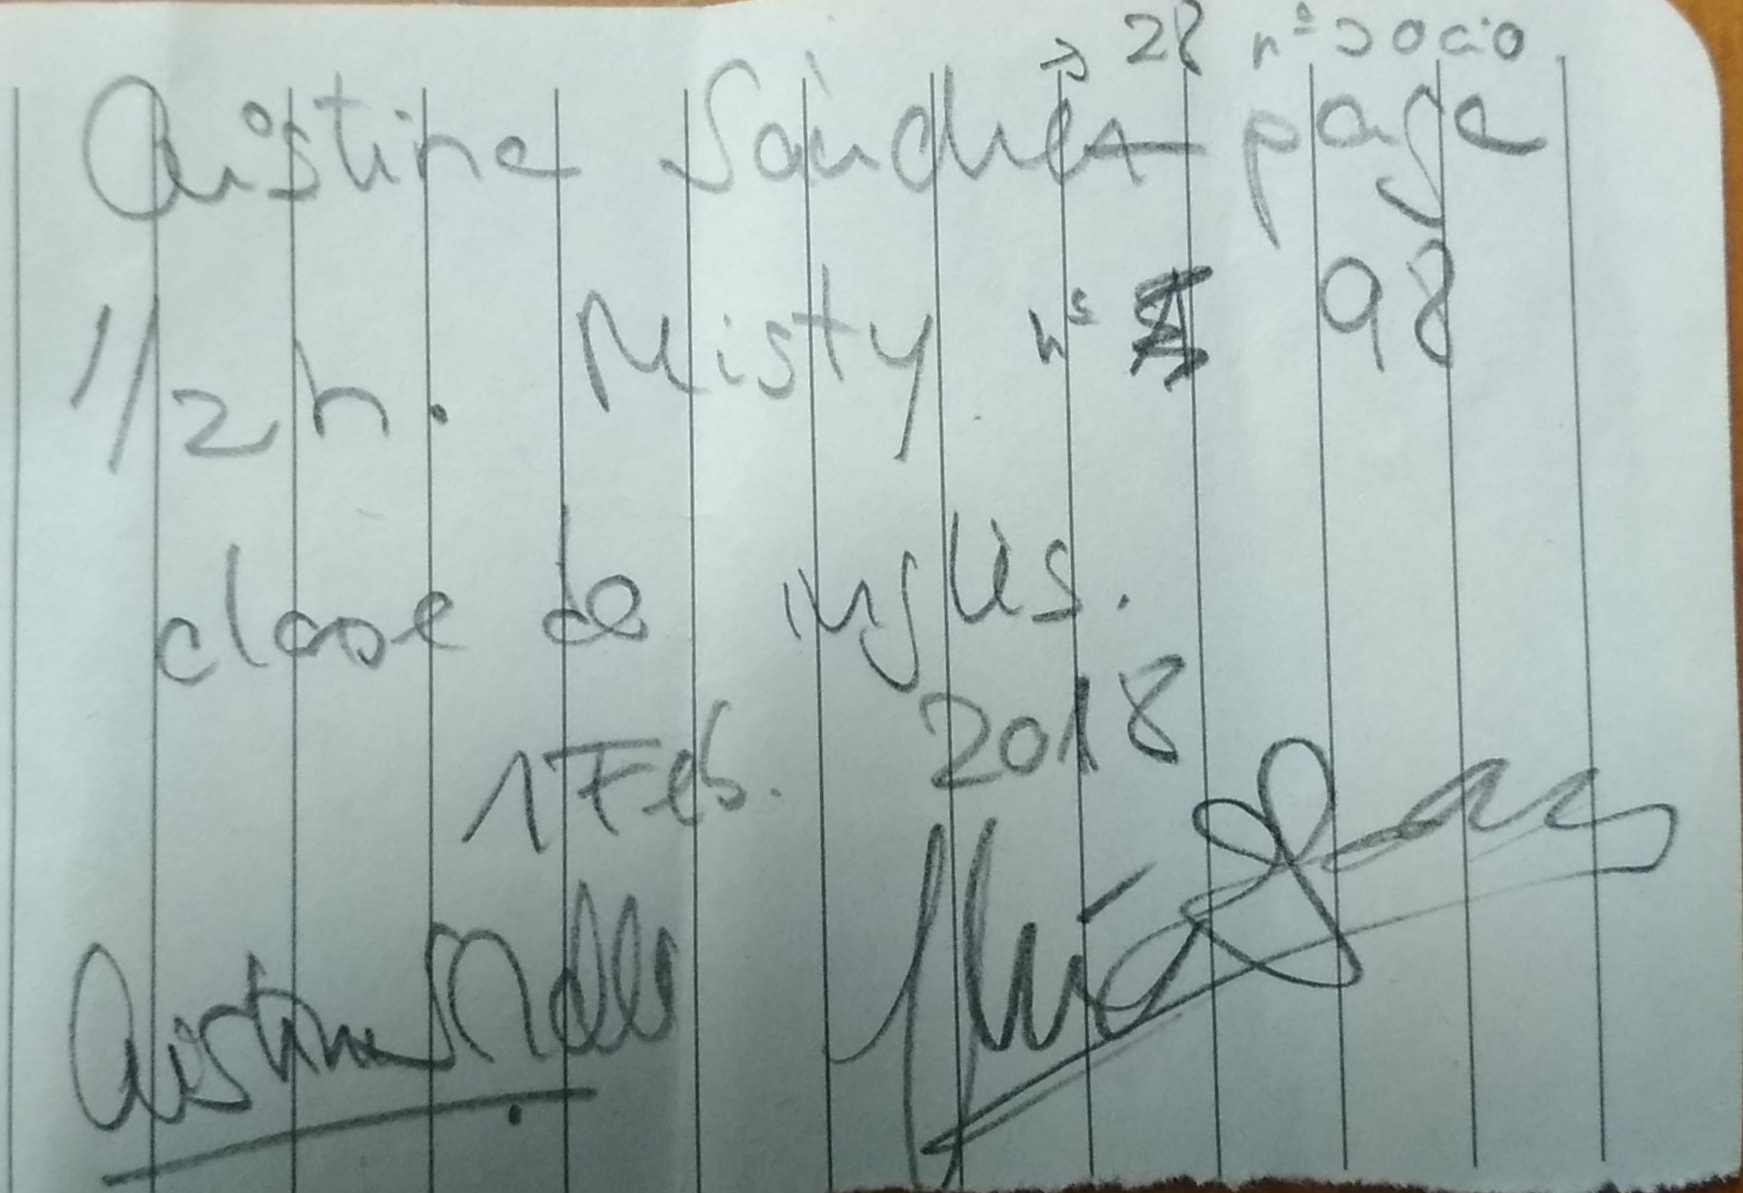 → 28 nº socio
Cristina Sánchez paga
1/2 h. Misty nº 98
clase de inglés.
1 Feb. 2018
Cristina